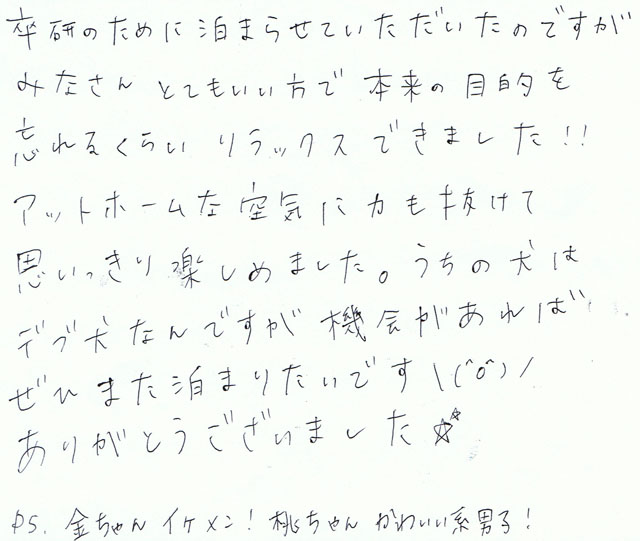 卒研のために泊まらせていただいたのですが
みなさん とてもいい方で 本来の目的を
忘れるくらい リラックスできました!!
アットホームな空気に力も抜けて
思いっきり楽しめました。うちの犬は
デブ犬なんですが 機会があれば
ぜひまた泊まりたいです\(^o^)/
ありがとうございました☆☆
P.S. 金ちゃん イケメン! 桃ちゃん かわいい系男子!